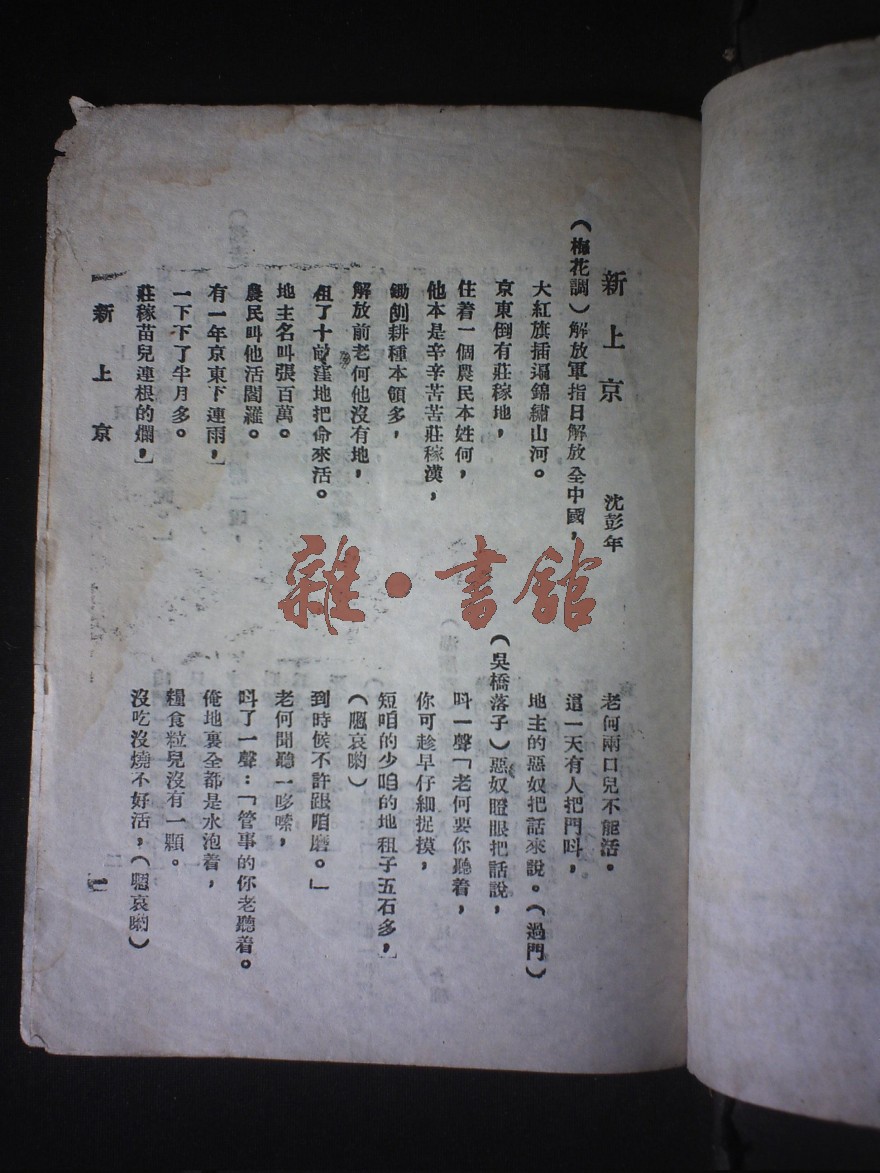 新上京
沈彭年
（梅花調）解放軍指日解放全中國，
大紅旗插遍錦繡山河。
京東倒有莊稼地，
住着一個農民本姓何，
他本是辛辛苦苦莊稼漢，
鋤刨耕種本領多，
解放前老何他沒有地，
租了十畝窪地把命來活。
地主名叫張百萬。
農民叫他活閻羅。
有一年京東下連雨，
一下下了半月多。
莊稼苗兒連根的爛，
老何兩口兒不能活。
這一天有人把門呌，
地主的惡奴把話來說。（過門）
（吳橋落子）惡奴瞪眼把話說，
呌一聲「老何要你聽着，
你可趁早仔細捉摸，
短咱的少咱的地租子五石多，
（嗯哀喲）
到時候不許跟咱磨。」
老何聞聽一哆嗦，
呌了一聲：「管事的你老聽着。
俺地裏全都是水泡着，
糧食粒兒沒有一顆。
沒吃沒燒不好活，（嗯哀喲）
新上京
一
雜·書館